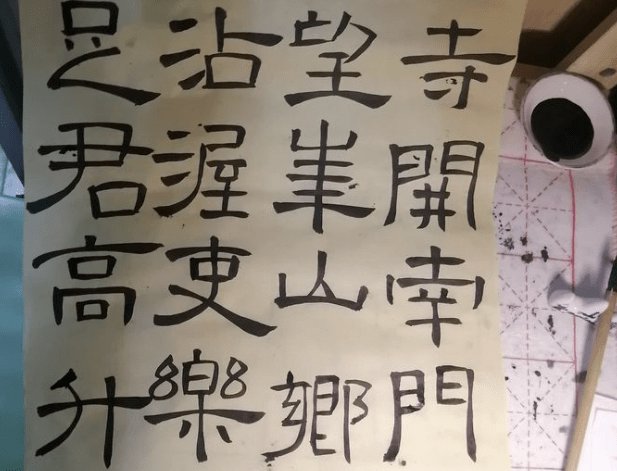 寺開南門
望華山鄉
沾渥吏樂
足君高升